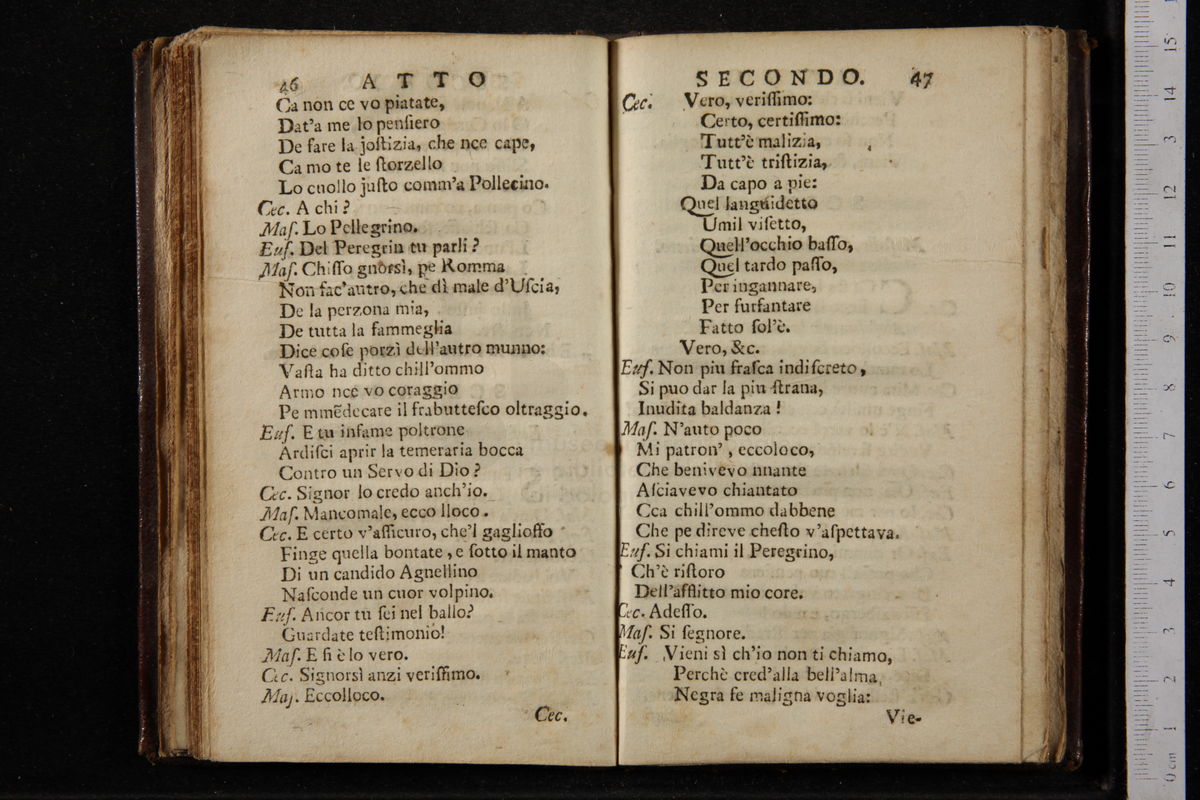 46 ATTO
Ca non ce vo piatate,
Dat'a me lo penſiero
De fare la joſtizia, che nce cape,
Ca mo te le ſtorzello
Lo cuollo juſto comm'a Pollecino.
Cec. A chi?
Maſ. Lo Pellegrino.
Euſ. Del Peregrin tu parli?
Maſ. Chiſſo gnorsì, pe Romma
Non fac'autro, che dì male d'Uſcia,
De la perzona mia,
De tutta la fammeglia
Dice coſe porzì dell'autro munno:
Vaſta ha ditto chill'ommo
Armo nce vo coraggio
Pe mmẽdecare il frabutteſco oltraggio.
Euſ. E tu infame poltrone
Ardiſci aprir la temeraria bocca
Contro un Servo di Dio?
Cec. Signor lo credo anch'io.
Maſ. Mancomale, ecco lloco.
Cec. E certo v'aſſicuro, che'l gaglioffo
Finge quella bontate, e ſotto il manto
Di un candido Agnellino
Naſconde un cuor volpino.
Euſ. Ancor tu ſei nel ballo?
Guardate teſtimonio!
Maſ. E ſi è lo vero.
Cec. Signorsì anzi veriſſimo.
Maſ. Eccolloco.
Cec.
SECONDO. 47
Cec. Vero, veriſſimo:
Certo, certiſſimo:
Tutt'è malizia,
Tutt'è triſtizia,
Da capo a pie:
Quel languidetto
Umil viſetto,
Quell'occhio baſſo,
Quel tardo paſſo,
Per ingannare,
Per furfantare
Fatto ſol'è.
Vero, &c.
Euſ. Non piu fraſca indiſcreto,
Si puo dar la piu ſtrana,
Inudita baldanza!
Maſ. N'auto poco
Mi patron', eccoloco,
Che benivevo nnante
Aſciavevo chiantato
Cca chill'ommo dabbene
Che pe direve cheſto v'aſpettava.
Euſ. Si chiami il Peregrino,
Ch'è riſtoro
Dell'afflitto mio core.
Cec. Adeſſo.
Maſ. Si ſegnore.
Euſ. Vieni sì ch'io non ti chiamo,
Perchè cred'alla bell'alma
Negra ſe maligna voglia:
Vie-
0 cm 1 2 3 4 5 6 7 8 9 10 11 12 13 14 15